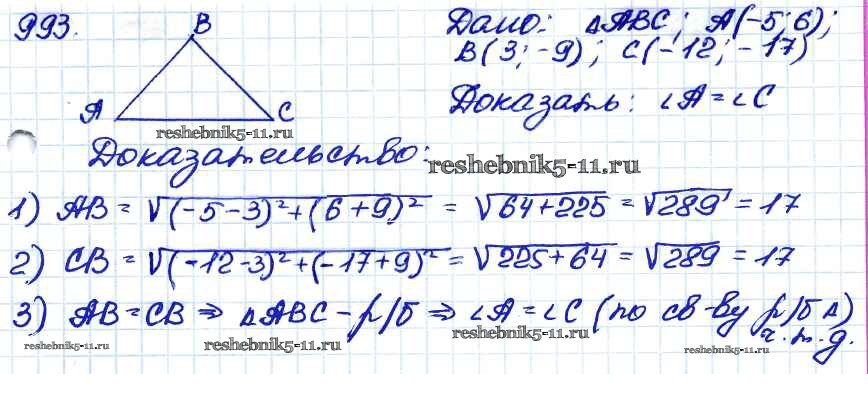 993.
B
A
C
reshebnik5-11.ru
Дано: △ABC; A(-5;6);
B(3;-9); C(-12;-17)
Доказать: ∠A=∠C
Доказательство:
reshebnik5-11.ru
1) AB = √(-5-3)²+(6+9)² = √64+225 = √289 = 17
2) CB = √(-12-3)²+(-17+9)² = √225+64 = √289 = 17
3) AB=CB ⇒ △ABC - р/б ⇒ ∠A=∠C (по св-ву р/б △)
ч.т.д.
reshebnik5-11.ru
reshebnik5-11.ru
reshebnik5-11.ru
reshebnik5-11.ru